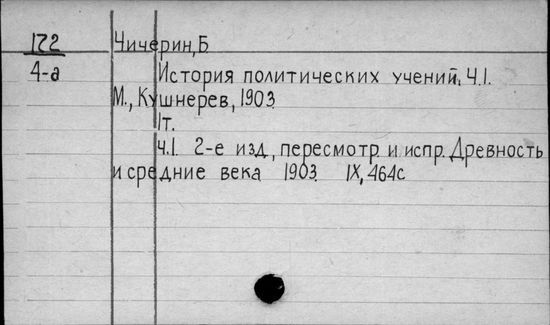 172 Чичерин, Б
4-а История политических учений, Ч.1.
М., Кушнерев, 1903
1т.
ч.1. 2-е изд., пересмотр. и испр. Древность
и средние века 1903. IX, 464с